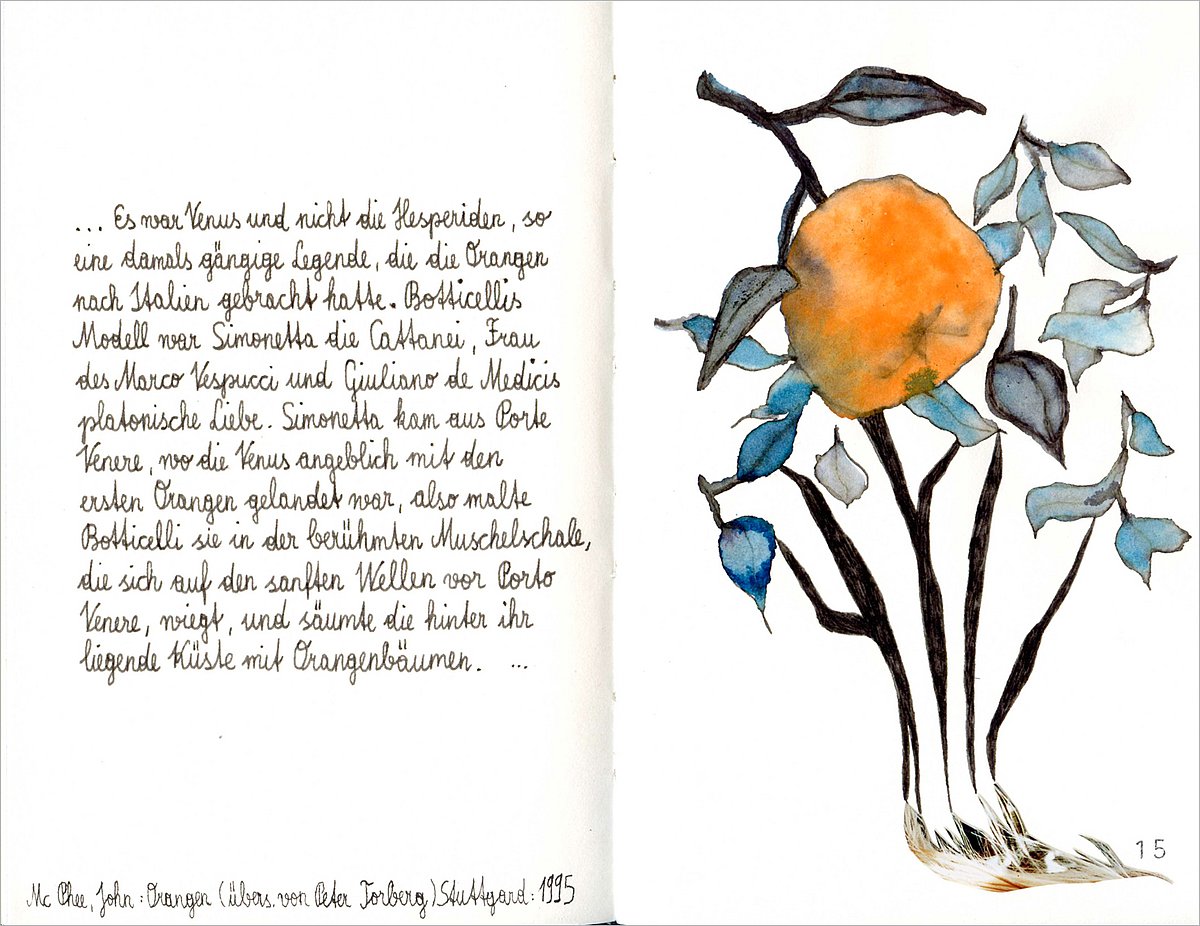 ... Es war Venus und nicht die Hesperiden, so
eine damals gängige Legende, die die Orangen
nach Italien gebracht hatte. Botticellis
Modell war Simonetta die Cattanei, Frau
des Marco Vespucci und Giuliano de Medicis
platonische Liebe. Simonetta kam aus Porte
Venere, wo die Venus angeblich mit den
ersten Orangen gelandet war, also malte
Botticelli sie in der berühmten Muschelschale,
die sich auf den sanften Wellen vor Porto
Venere, wiegt, und säumte die hinter ihr
liegende Küste mit Orangenbäumen. ...
Mc Phee, John: Orangen (übers. von Peter Torberg) Stuttgard: 1995
15